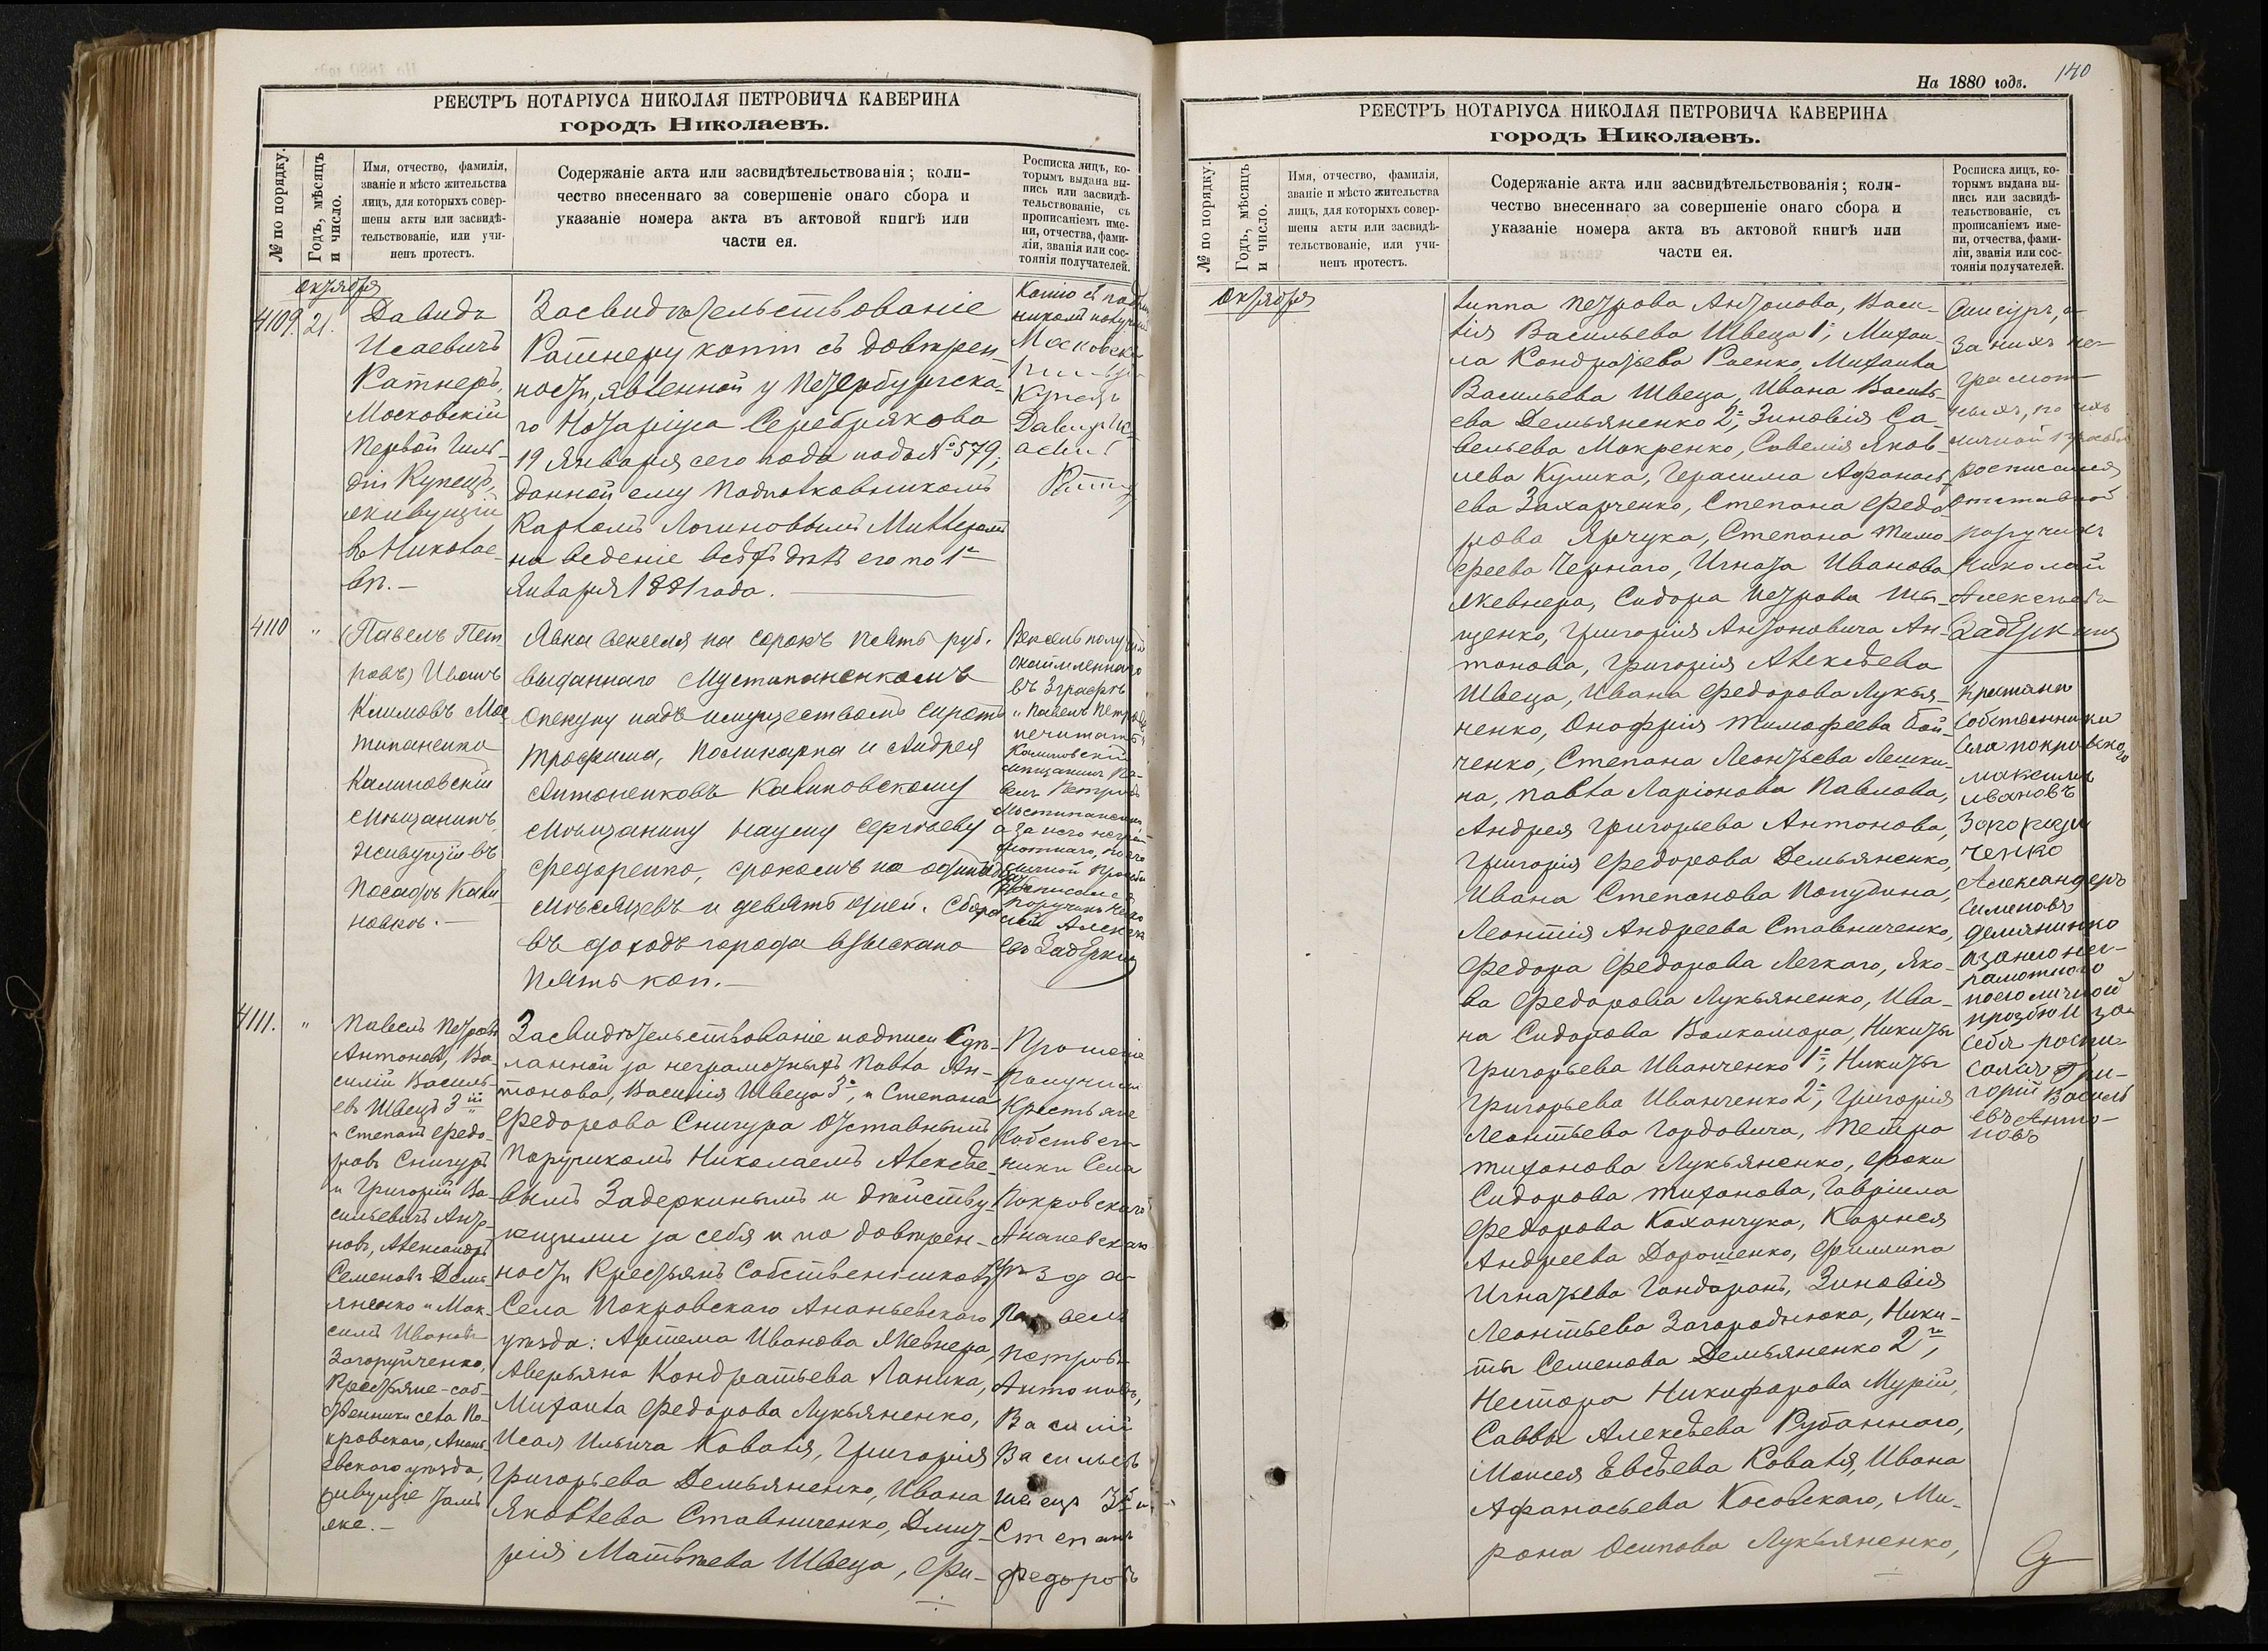 РЕЕСТРЪ НОТАРІУСА НИКОЛАЯ ПЕТРОВИЧА КАВЕРИНА
городъ Николаевъ.
№ по порядку.
Годъ, мѣсяцъ
и число.
Имя, отчество, фамилія,
званіе и мѣсто жительства
лицъ, для которыхъ совер-
шены акты или засвидѣ-
тельствованіе, или учи-
ненъ протестъ.
Содержаніе акта или засвидѣтельствованія; коли-
чество внесеннаго за совершеніе онаго сбора и
указаніе номера акта въ актовой книгѣ или
части ея.
Росписка лицъ, ко-
торымъ выдана вы-
пись или засвидѣ-
тельствованіе, съ
прописаніемъ име-
ни, отчества, фами-
ліи, званія или сос-
тоянія получателей.
октября
4109. 21.
Давидъ
Исаевичъ
Ратнеръ,
Московскій
Первой Гиль-
діи Купецъ,
живущій
въ Николае-
вѣ.—
Засвидѣтельствованіе
Ратнеру копіи съ довѣрен-
ности, явленной у Петербургска-
го Нотаріуса Серебрякова
19 Января сего года подъ № 579,
данной ему Подполковникомъ
Карломъ Логиновымъ Миллеромъ
на веденіе всѣхъ дѣлъ его по 1е
Января 1881 года.
Копію съ
Московскій
Купецъ
Давидъ
4110 "
(Павелъ Пет-
ровъ) Иванъ
Климовъ Мос
типаненко
Калиновскій
Мѣщанинъ,
живущій въ
Посадѣ Кали
новкѣ.—
Явка векселя на сорокъ пять руб.
выданнаго Мустипаненкомъ
Опекуну надъ имуществомъ сиротъ
Трофима, Поликарпа и Андрея
Антоненковъ Калиновскому
Мѣщанину Науму Сергѣеву
Федоренко, срокомъ на
мѣсяцевъ и девять дней. Сбора
въ доходъ города взыскано
пять коп.—
Вексель получилъ
"Павелъ Петровъ
Калиновскій
мѣщанинъ Па-
велъ Петровъ
Мостипаненко,
а за него негра-
мотнаго, по его
личной просьбѣ
росписался
поручикъ Нико
лай Алексѣ
евъ Задеркинъ
4111. "
Павелъ Петровъ
Антоновъ, Ва-
силій Василь-
евъ Швецъ 3ій
и Степанъ Федо-
ровъ Снигуръ
и Григорій Ва-
сильевичъ Анто-
новъ, Александръ
Семеновъ Демь-
яненко и Мак-
симъ Ивановъ
Загоруйченко,
Крестьяне-соб-
ственники села По-
кровскаго, Анань-
евскаго уѣзда,
живущіе тамъ
же.—
Засвидѣтельствованіе подписи сдѣ-
ланной за неграмотныхъ Павла Ан-
тонова, Василія Швеца 3о, и Степана
Федорова Снигура Отставнымъ
Поручикомъ Николаемъ Алексѣе-
вымъ Задеркинымъ и дѣйству-
ющими за себя и по довѣрен-
ности Крестьянъ Собственниковъ
Села Покровскаго Ананьевскаго
уѣзда: Артема Иванова Жевнера,
Аверьяна Кондратьева Ланика,
Михаила Федорова Лукьяненко,
Исая Ильича Коваля, Григорія
Григорьева Демьяненко, Ивана
Яковлева Ставниченко, Дмит-
рія Матвѣева Швеца, Фи-
Прошеніе
Получили
Крестьяне
Собствен
ники Села
Покровскаго
Ананевскаго
уѣзда
Павелъ
Петровъ
Антоновъ,
Василій
Васильевъ
Швецъ 3й и
Степанъ
Федоровъ
140
На 1880 годъ.
РЕЕСТРЪ НОТАРІУСА НИКОЛАЯ ПЕТРОВИЧА КАВЕРИНА
городъ Николаевъ.
№ по порядку.
Годъ, мѣсяцъ
и число.
Имя, отчество, фамилія,
званіе и мѣсто жительства
лицъ, для которыхъ совер-
шены акты или засвидѣ-
тельствованіе, или учи-
ненъ протестъ.
Содержаніе акта или засвидѣтельствованія; коли-
чество внесеннаго за совершеніе онаго сбора и
указаніе номера акта въ актовой книгѣ или
части ея.
Росписка лицъ, ко-
торымъ выдана вы-
пись или засвидѣ-
тельствованіе, съ
прописаніемъ име-
ни, отчества, фами-
ліи, званія или сос-
тоянія получателей.
октября
липпа Петрова Антонова, Васи-
лія Васильева Швеца 1о, Михаи-
ла Кондратьева Раенко, Михаила
Васильева Швеца, Ивана Василь-
ева Демьяненко 2о, Зиновія Са-
вельева Мокренко, Савелія Яков-
лева Кулика, Герасима Афанась-
ева Захарченко, Степана Федо-
рова Ярчука, Степана Тимо-
феева Чернаго, Игната Иванова
Жевнера, Сидора Петрова Ты-
щенко, Григорія Антоновича Ан-
тонова, Григорія Алексѣева
Швеца, Ивана Федорова Лукья-
ненко, Онофрія Тимофеева Бой-
ченко, Степана Леонтьева Лешки-
на, Павла Ларіонова Павлова,
Андрея Григорьева Антонова,
Григорія Федорова Демьяненко,
Ивана Степанова Попудина,
Леонтія Андреева Ставниченко,
Федора Федорова Легкаго, Яко-
ва Федорова Лукьяненко, Ива-
на Сидорова Волкомора, Никиты
Григорьева Иванченко 1о, Никиты
Григорьева Иванченко 2о, Григорія
Леонтьева Гордовича, Петра
Тихонова Лукьяненко, Фоки
Сидорова Тихонова, Гавріила
Федорова Коханчука, Корнея
Андреева Дорошенко, Филиппа
Игнатьева Гондаранъ, Зиновія
Леонтьева Загороднюка, Ники-
ты Семенова Демьяненко 2го,
Нестора Никифорова Мурій,
Саввы Алексѣева Рубаннаго,
Моисея Евсѣева Коваля, Ивана
Афанасьева Косовскаго, Ми-
рона Осипова Лукьяненко,
Снигуръ, а
за нихъ не-
грамот-
ныхъ, по ихъ
личной просьбѣ
росписался
отставной
поручикъ
Николай
Алексѣевъ
Задеркинъ
Крестьяне
Собственники
Села Покровскаго
Максимъ
Ивановъ
Загоруй
ченко
Александеръ
Семеновъ
Демяненко
а за него нег-
рамотного
по его личной
прозбѣ и за
себя роспи-
салъся Гри-
горій Василь
евъ Анто-
новъ